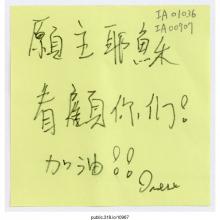 IA 01036
IA00907
願主耶穌
看顧你們!
加油!!
public.318.io/10967